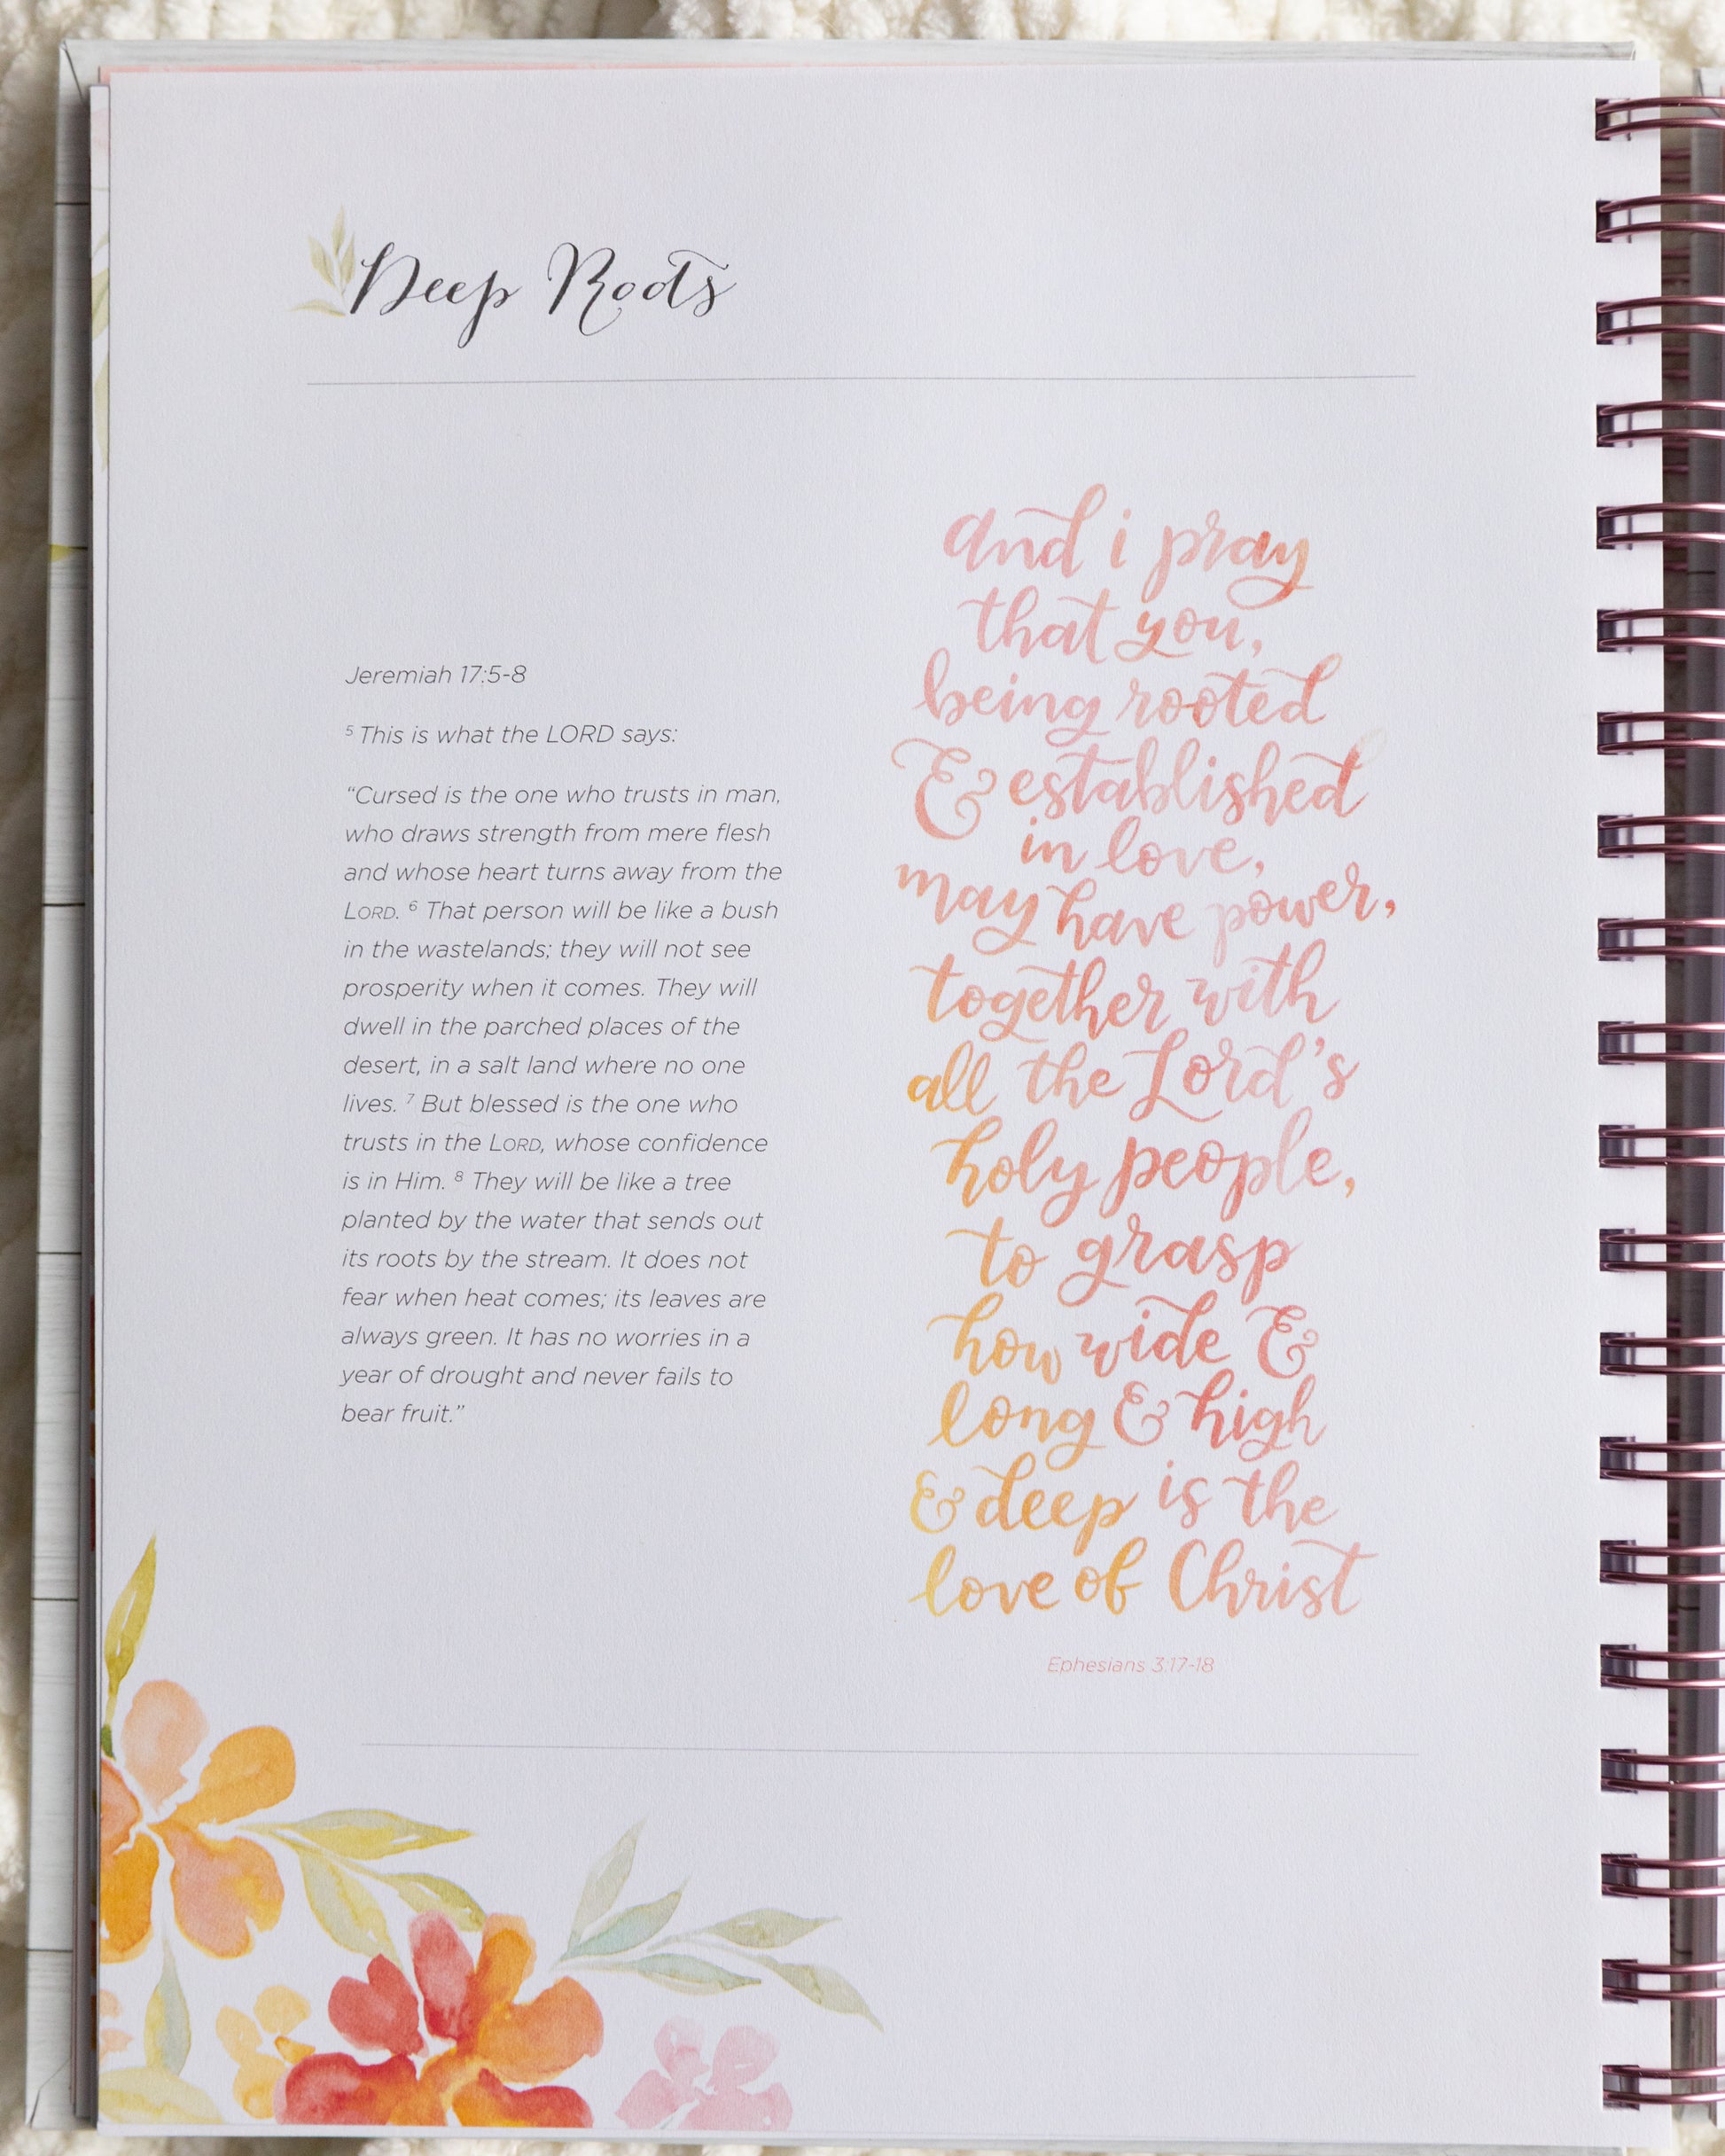 Deep Roots
Jeremiah 17:5-8
⁵ This is what the LORD says:
“Cursed is the one who trusts in man,
who draws strength from mere flesh
and whose heart turns away from the
LORD. ⁶ That person will be like a bush
in the wastelands; they will not see
prosperity when it comes. They will
dwell in the parched places of the
desert, in a salt land where no one
lives. ⁷ But blessed is the one who
trusts in the LORD, whose confidence
is in Him. ⁸ They will be like a tree
planted by the water that sends out
its roots by the stream. It does not
fear when heat comes; its leaves are
always green. It has no worries in a
year of drought and never fails to
bear fruit.”
and i pray
that you,
being rooted
& established
in love,
may have power,
together with
all the Lord's
holy people,
to grasp
how wide &
long & high
& deep is the
love of Christ
Ephesians 3:17-18